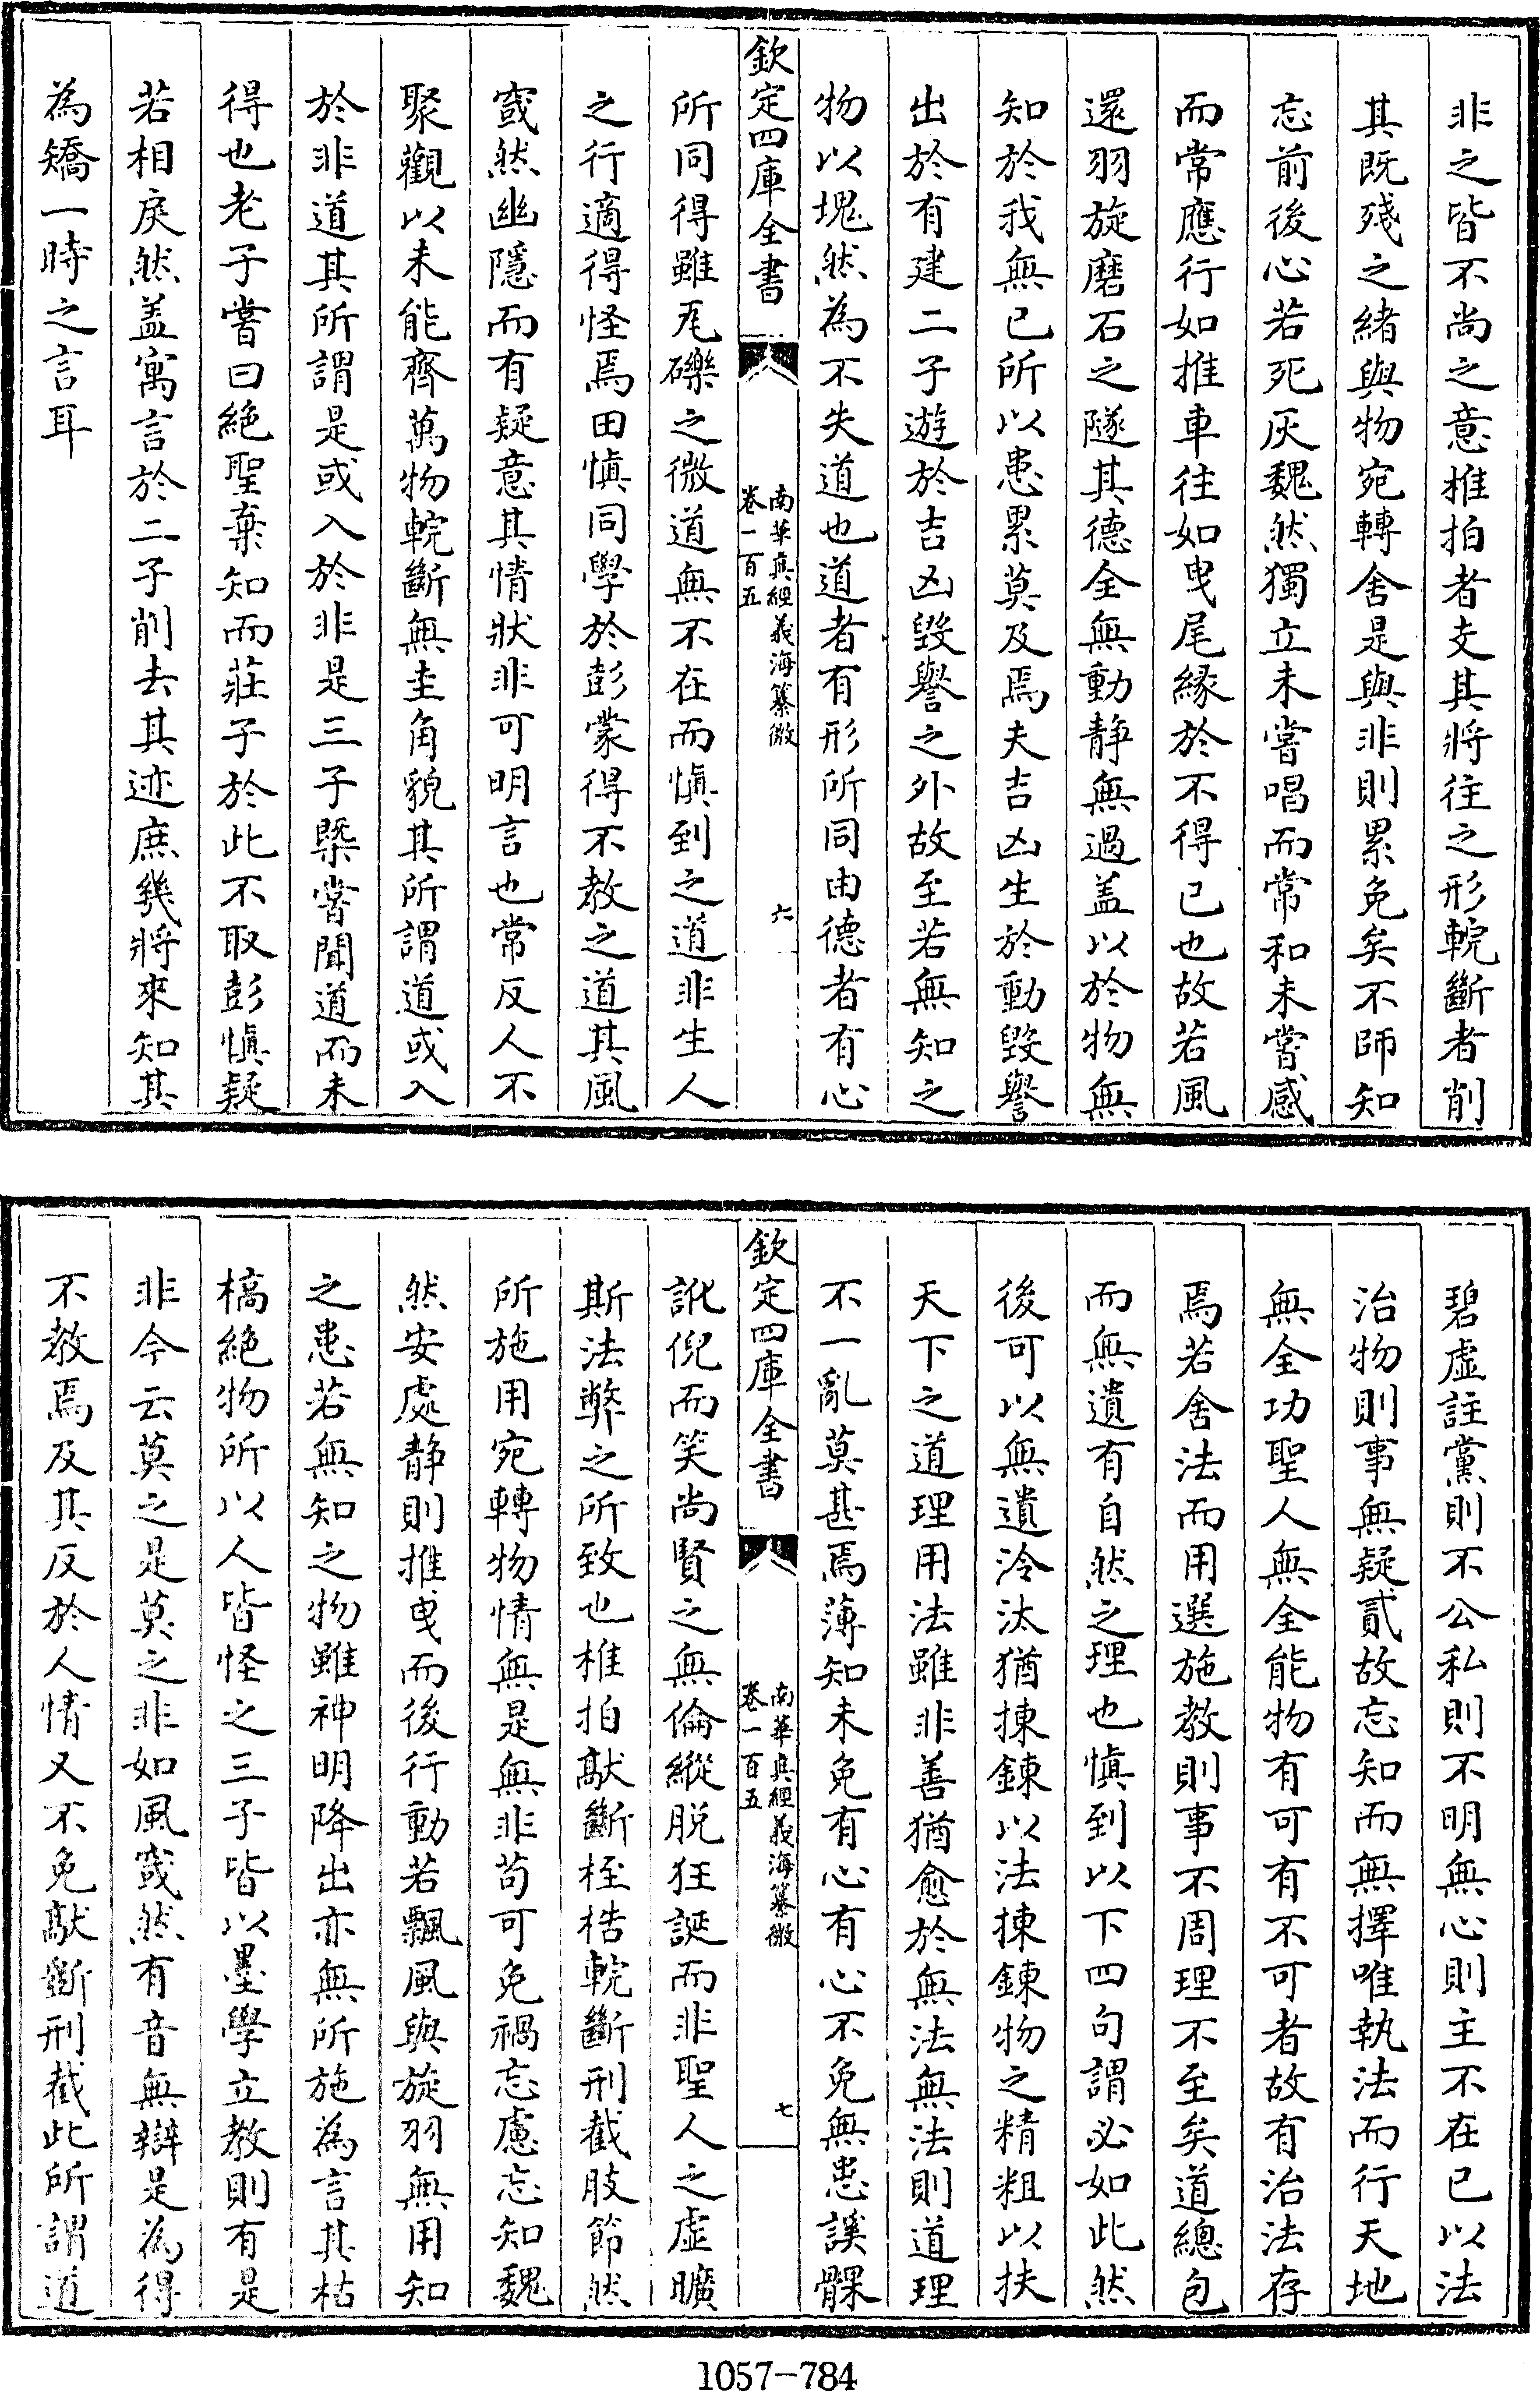 非之皆不尚之意椎拍者支其將往之形輐斷者削
其既殘之緒與物宛轉舍是與非則累免矣不師知
忘前後心若死灰魏然獨立未嘗唱而常和未嘗感
而常應行如推車往如曳尾緣於不得已也故若風
還羽旋磨石之隧其德全無動静無過盖以於物無
知於我無已所以患累莫及焉夫吉凶生於動毀譽
出於有建二子遊於吉凶毀譽之外故至若無知之
物以塊然為不失道也道者有形所同由德者有心
欽定四庫全書
南華真經義海纂微
卷一百五
六
所同得雖瓦礫之微道無不在而慎到之道非生人
之行適得怪焉田慎同學於彭蒙得不教之道其風
窢然幽隱而有疑意其情狀非可明言也常反人不
聚觀以未能齊萬物輐斷無圭角貌其所謂道或入
於非道其所謂是或入於非是三子槩嘗聞道而未
得也老子嘗曰絶聖棄知而莊子於此不取彭慎疑
若相戾然盖寓言於二子削去其迹庶幾將來知其
為矯一時之言耳
碧虚註黨則不公私則不明無心則主不在已以法
治物則事無疑貳故忘知而無擇唯執法而行天地
無全功聖人無全能物有可有不可者故有治法存
焉若舍法而用選施教則事不周理不至矣道總包
而無遺有自然之理也慎到以下四句謂必如此然
後可以無遺泠汰猶揀鍊以法揀鍊物之精粗以扶
天下之道理用法雖非善猶愈於無法無法則道理
不一亂莫甚焉薄知未免有心有心不免無忠謑髁
欽定四庫全書
南華真經義海纂微
卷一百五
七
訛倪而笑尚賢之無倫縱脱狂誕而非聖人之虚曠
斯法弊之所致也椎拍㪁斷桎梏輐斷刑截肢節然
所施用宛轉物情無是無非苟可免禍忘慮忘知魏
然安處静則推曳而後行動若飄風與旋羽無用知
之患若無知之物雖神明降出亦無所施為言其枯
槁絶物所以人皆怪之三子皆以墨學立教則有是
非今云莫之是莫之非如風窢然有音無辯是為得
不教焉及其反於人情又不免㪁斷刑截此所謂道
1057-784